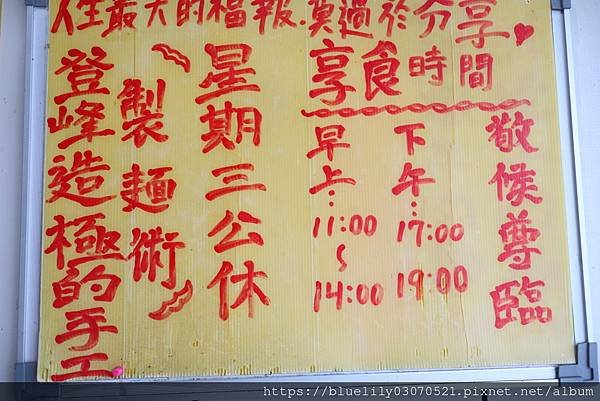 人生最大的福報.莫過於分享
享食時間
早上:11:00
~
14:00
下午:17:00
19:00
敬候尊臨
星期三公休
製麵術
登峰造極的手工
https://bluelily03070521.pixnet.net/album